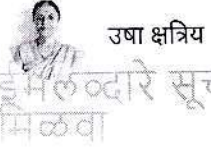 उषा क्षत्रिय
ईमेलव्दारे सूच
मिळवा